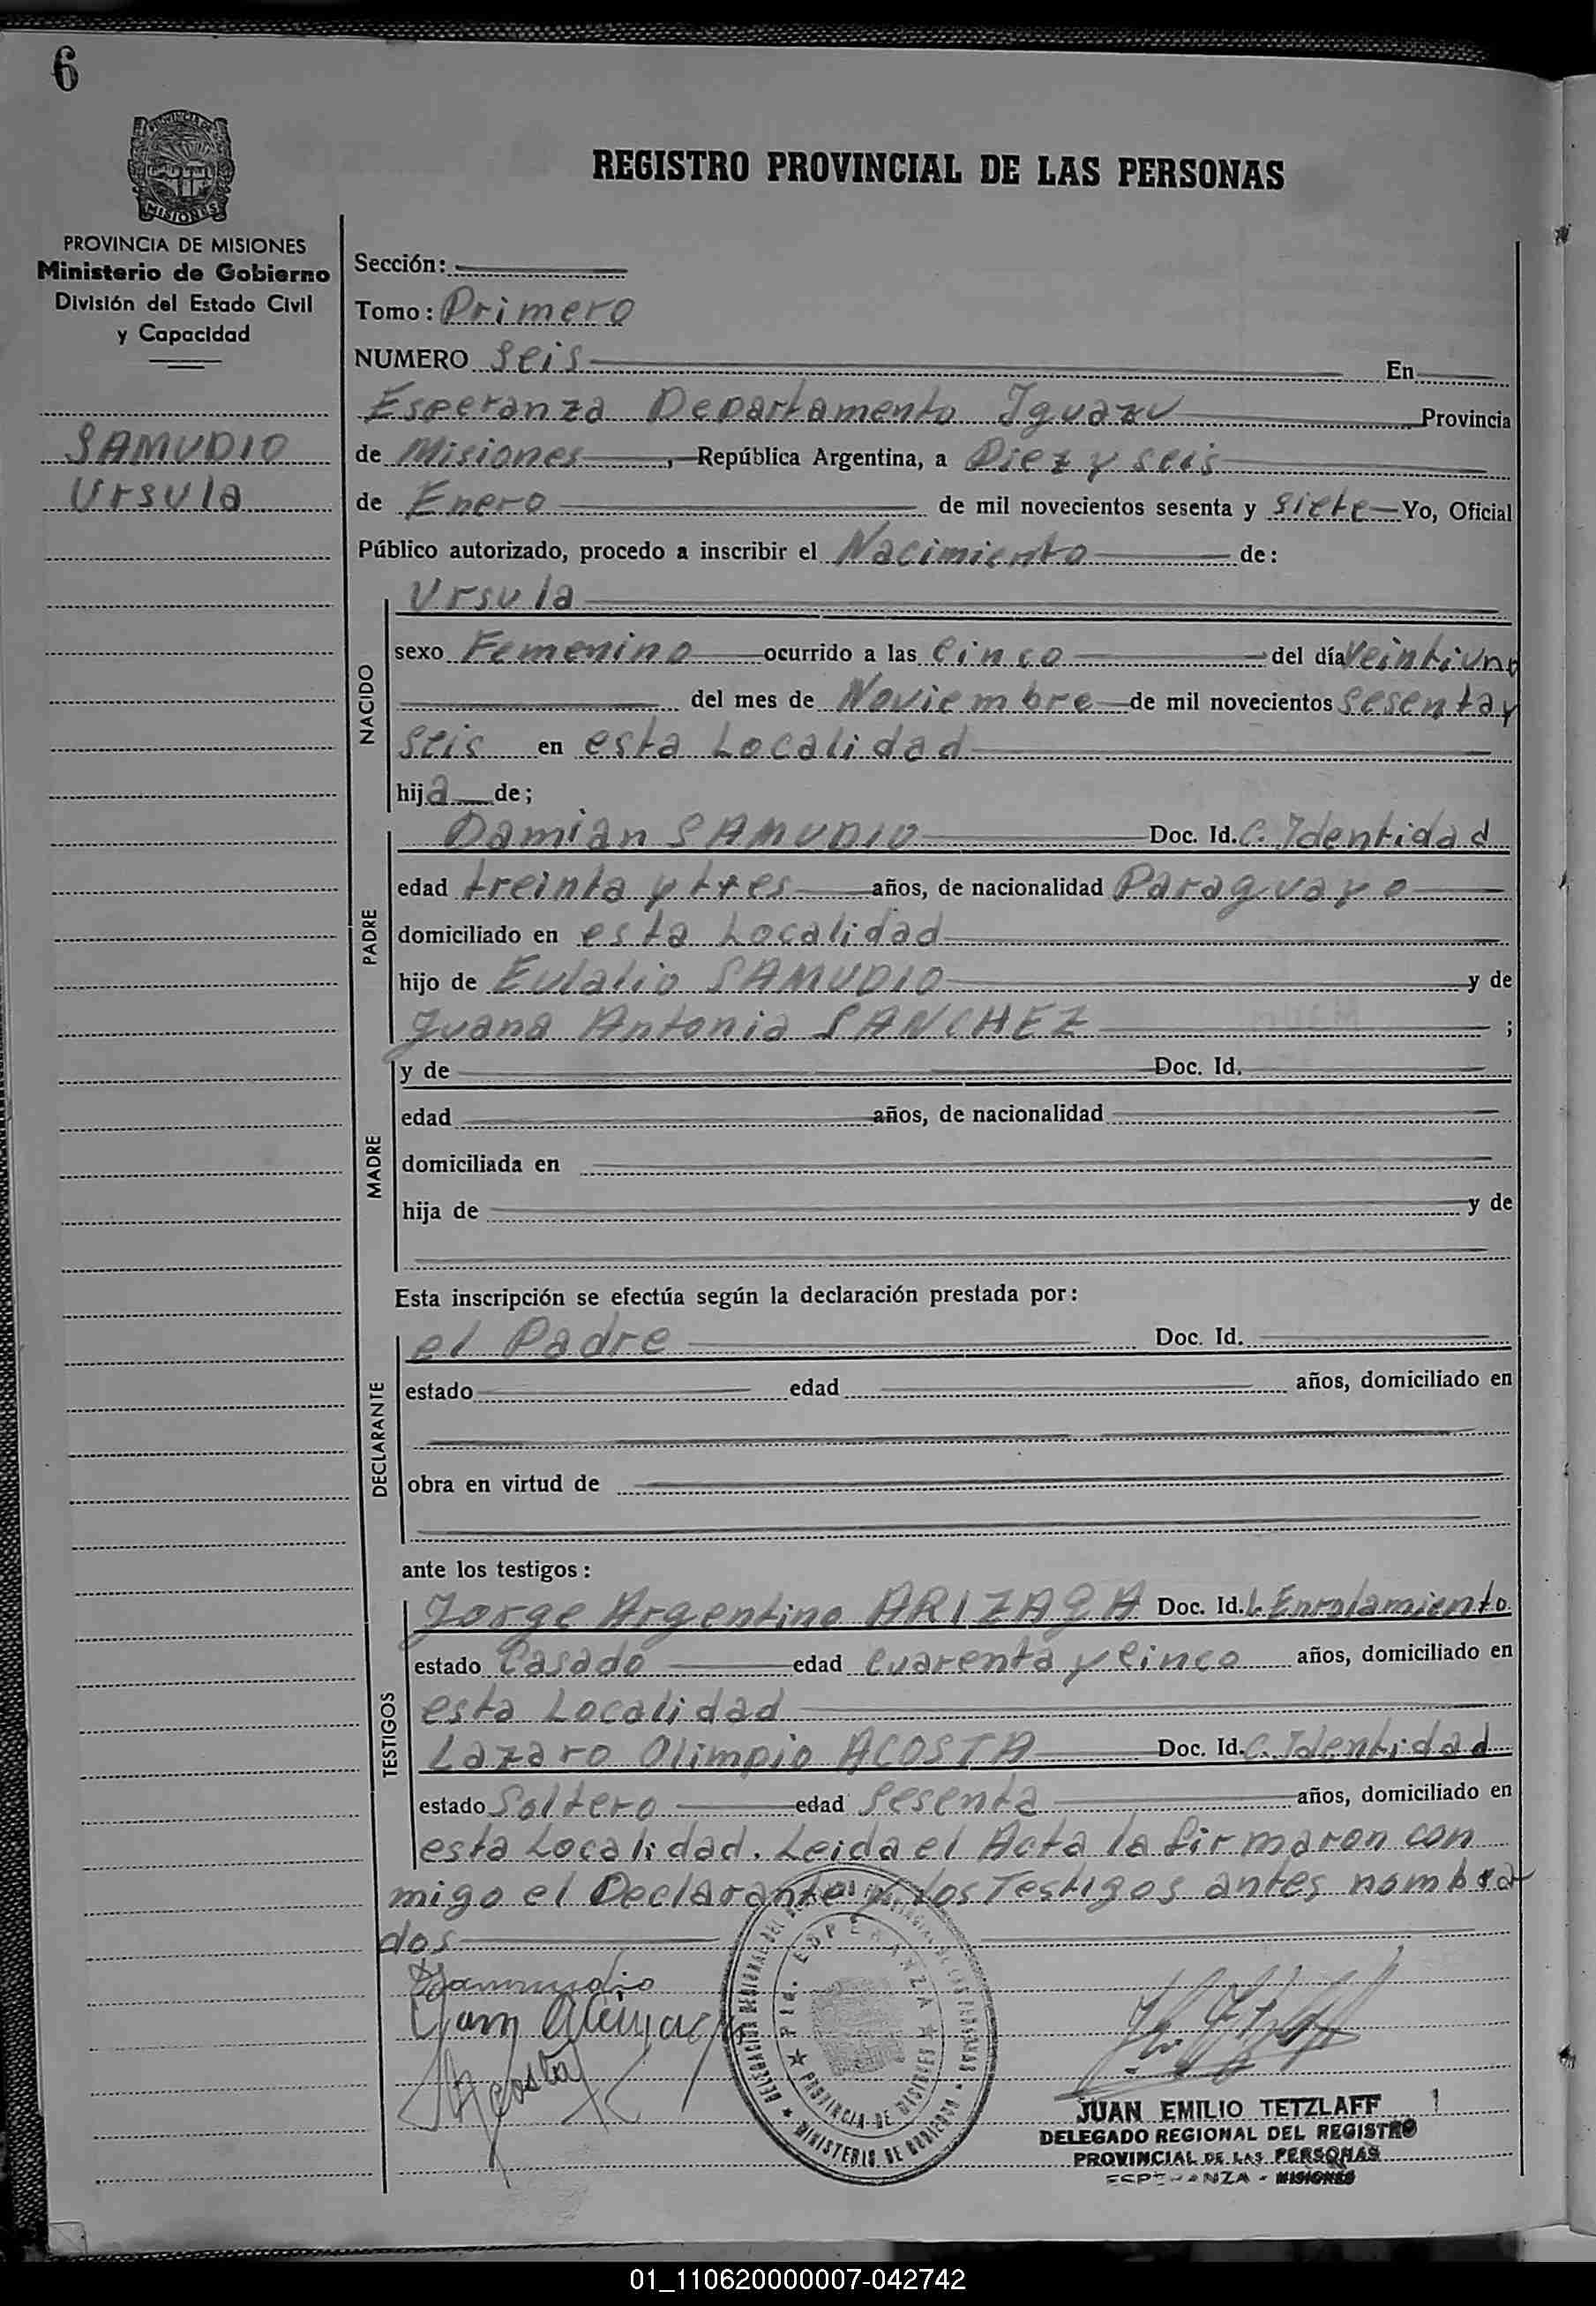 6
PROVINCIA DE
MISIONES
REGISTRO PROVINCIAL DE LAS PERSONAS
PROVINCIA DE MISIONES
Ministerio de Gobierno
División del Estado Civil
y Capacidad
SAMUDIO
Ursula
Sección:
Tomo: Primero
NUMERO Seis En
Esperanza Departamento Iguazu Provincia
de Misiones, República Argentina, a Diez y seis
de Enero de mil novecientos sesenta y siete Yo, Oficial
Público autorizado, procedo a inscribir el Nacimiento de:
NACIDO
Ursula
sexo Femenino ocurrido a las Cinco del día Veintiuno
del mes de Noviembre de mil novecientos sesenta y
seis en esta Localidad
hija de;
PADRE
Damian SAMUDIO Doc. Id. C. Identidad
edad treinta y tres años, de nacionalidad Paraguayo
domiciliado en esta Localidad
hijo de Eulalio SAMUDIO y de
Juana Antonia SANCHEZ ;
MADRE
y de Doc. Id.
edad años, de nacionalidad
domiciliada en
hija de y de
Esta inscripción se efectúa según la declaración prestada por:
DECLARANTE
el Padre Doc. Id.
estado edad años, domiciliado en
obra en virtud de
ante los testigos:
TESTIGOS
Jorge Argentino ARIZAGA Doc. Id. L. Enrolamiento
estado Casado edad cuarenta y cinco años, domiciliado en
esta Localidad
Lazaro Olimpio ACOSTA Doc. Id. C. Identidad
estado Soltero edad Sesenta años, domiciliado en
esta Localidad. Leida el Acta la firmaron con
migo el Declarante y los Testigos antes nombra
dos
Samudio
Acosta
DELEGACION REGIONAL DEL REGISTRO PROVINCIAL DE LAS PERSONAS
MINISTERIO DE GOBIERNO
Pto. ESPERANZA
PROVINCIA DE MISIONES
JUAN EMILIO TETZLAFF
DELEGADO REGIONAL DEL REGISTRO
PROVINCIAL DE LAS PERSONAS
ESPERANZA - MISIONES
01_110620000007-042742